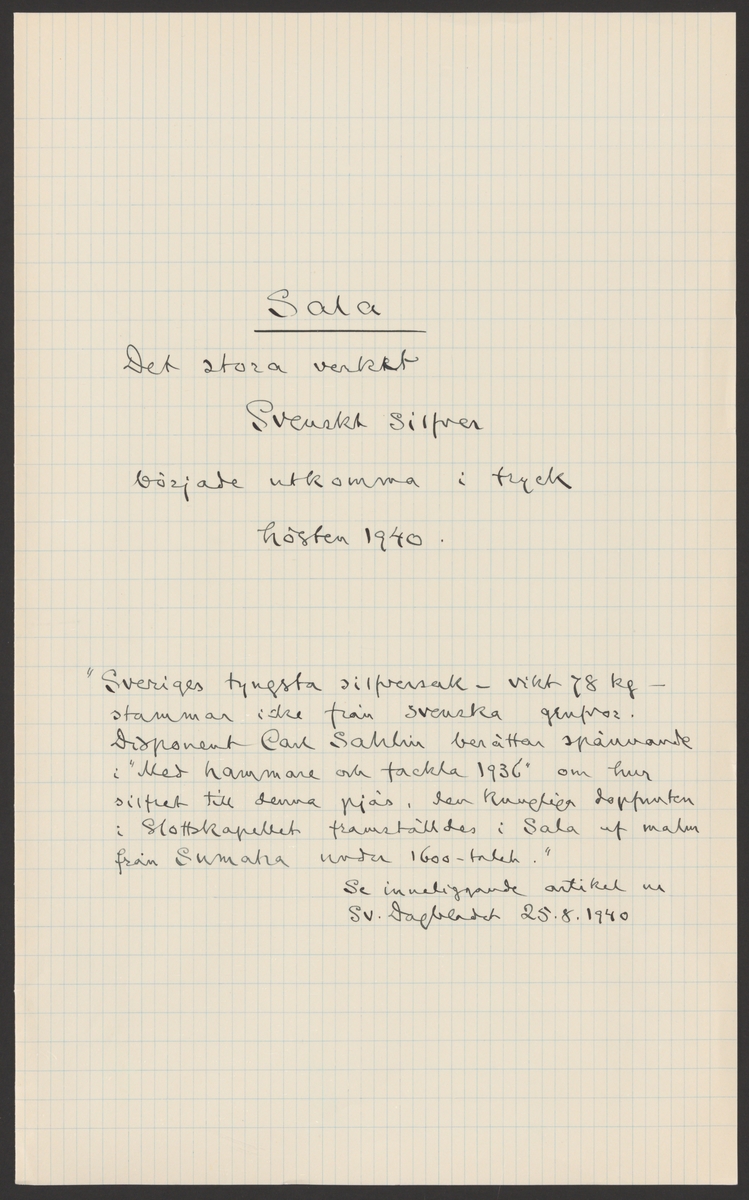 Sala
Det stora verket
Svenskt Silfver
började utkomma i tryck
hösten 1940.
"Sveriges tyngsta silfversak – vikt 78 kg –
stammar icke från svenska grufvor.
Disponent Carl Sahlin berättar spännande
i "Med hammare och fackla 1936" om hur
silfret till denna pjäs, den Kungliga dopfunten
i Slottskapellet framställdes i Sala af malm
från Sumatra under 1600-talet."
Se inneliggande artikel ur
Sv. Dagbladet 25.8.1940